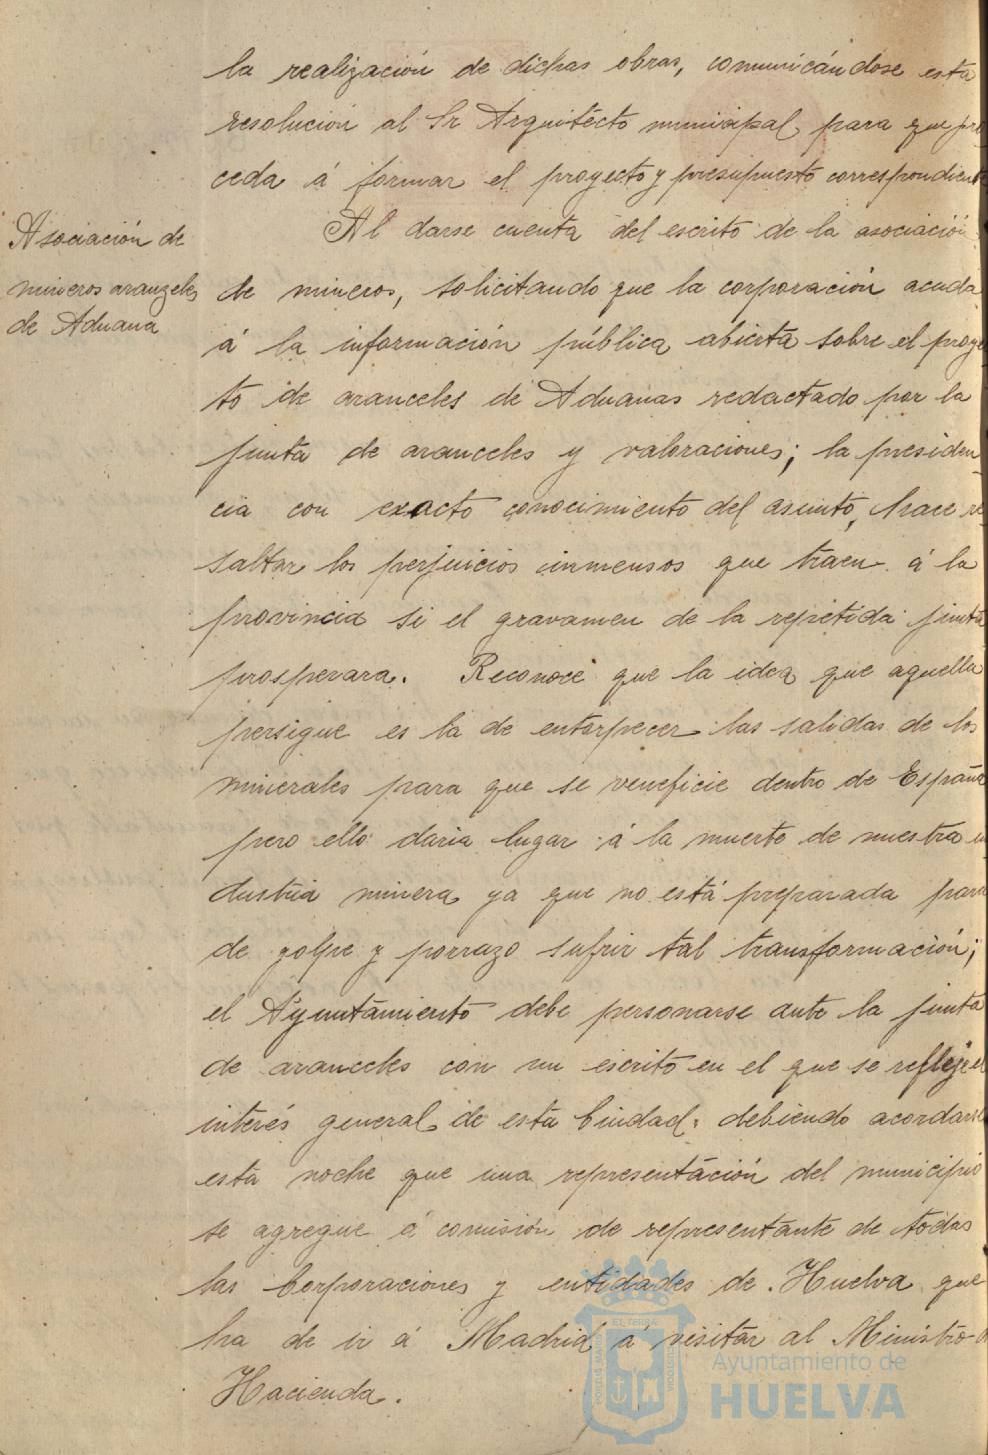 la realización de dichas obras, comunicándose esta
resolución al Sr Arquitecto municipal para que pro
ceda á formar el proyecto y presupuesto correspondiente
Asociación de
mineros aranzeles
de Aduana
Al darse cuenta del escrito de la asociación
de mineros, solicitando que la corporación acuda
á la información pública abierta sobre el proye
to de aranceles de Aduanas redactado por la
junta de aranceles y valoraciones; la presiden
cia con exacto conocimiento del asunto, hace re
saltar los perjuicios inmensos que traen á la
provincia si el gravamen de la repetida junta
prosperara. Reconoce que la idea que aquella
persigue es la de entorpecer las salidas de los
minerales para que se veneficie dentro de España
pero ello daria lugar á la muerte de nuestra in
dustria minera ya que no está preparada para
de golpe y porrazo sufrir tal transformación;
el Ayuntamiento debe personarse ante la junta
de aranceles con un escrito en el que se refleje el
interés general de esta Ciudad: debiendo acordarse
esta noche que una representación del municipio
se agregue á comisión de representante de todas
las Corporaciones y entidades de Huelva que
ha de ir á Madrid á visitar al Ministro
Hacienda.
Ayuntamiento de
HUELVA